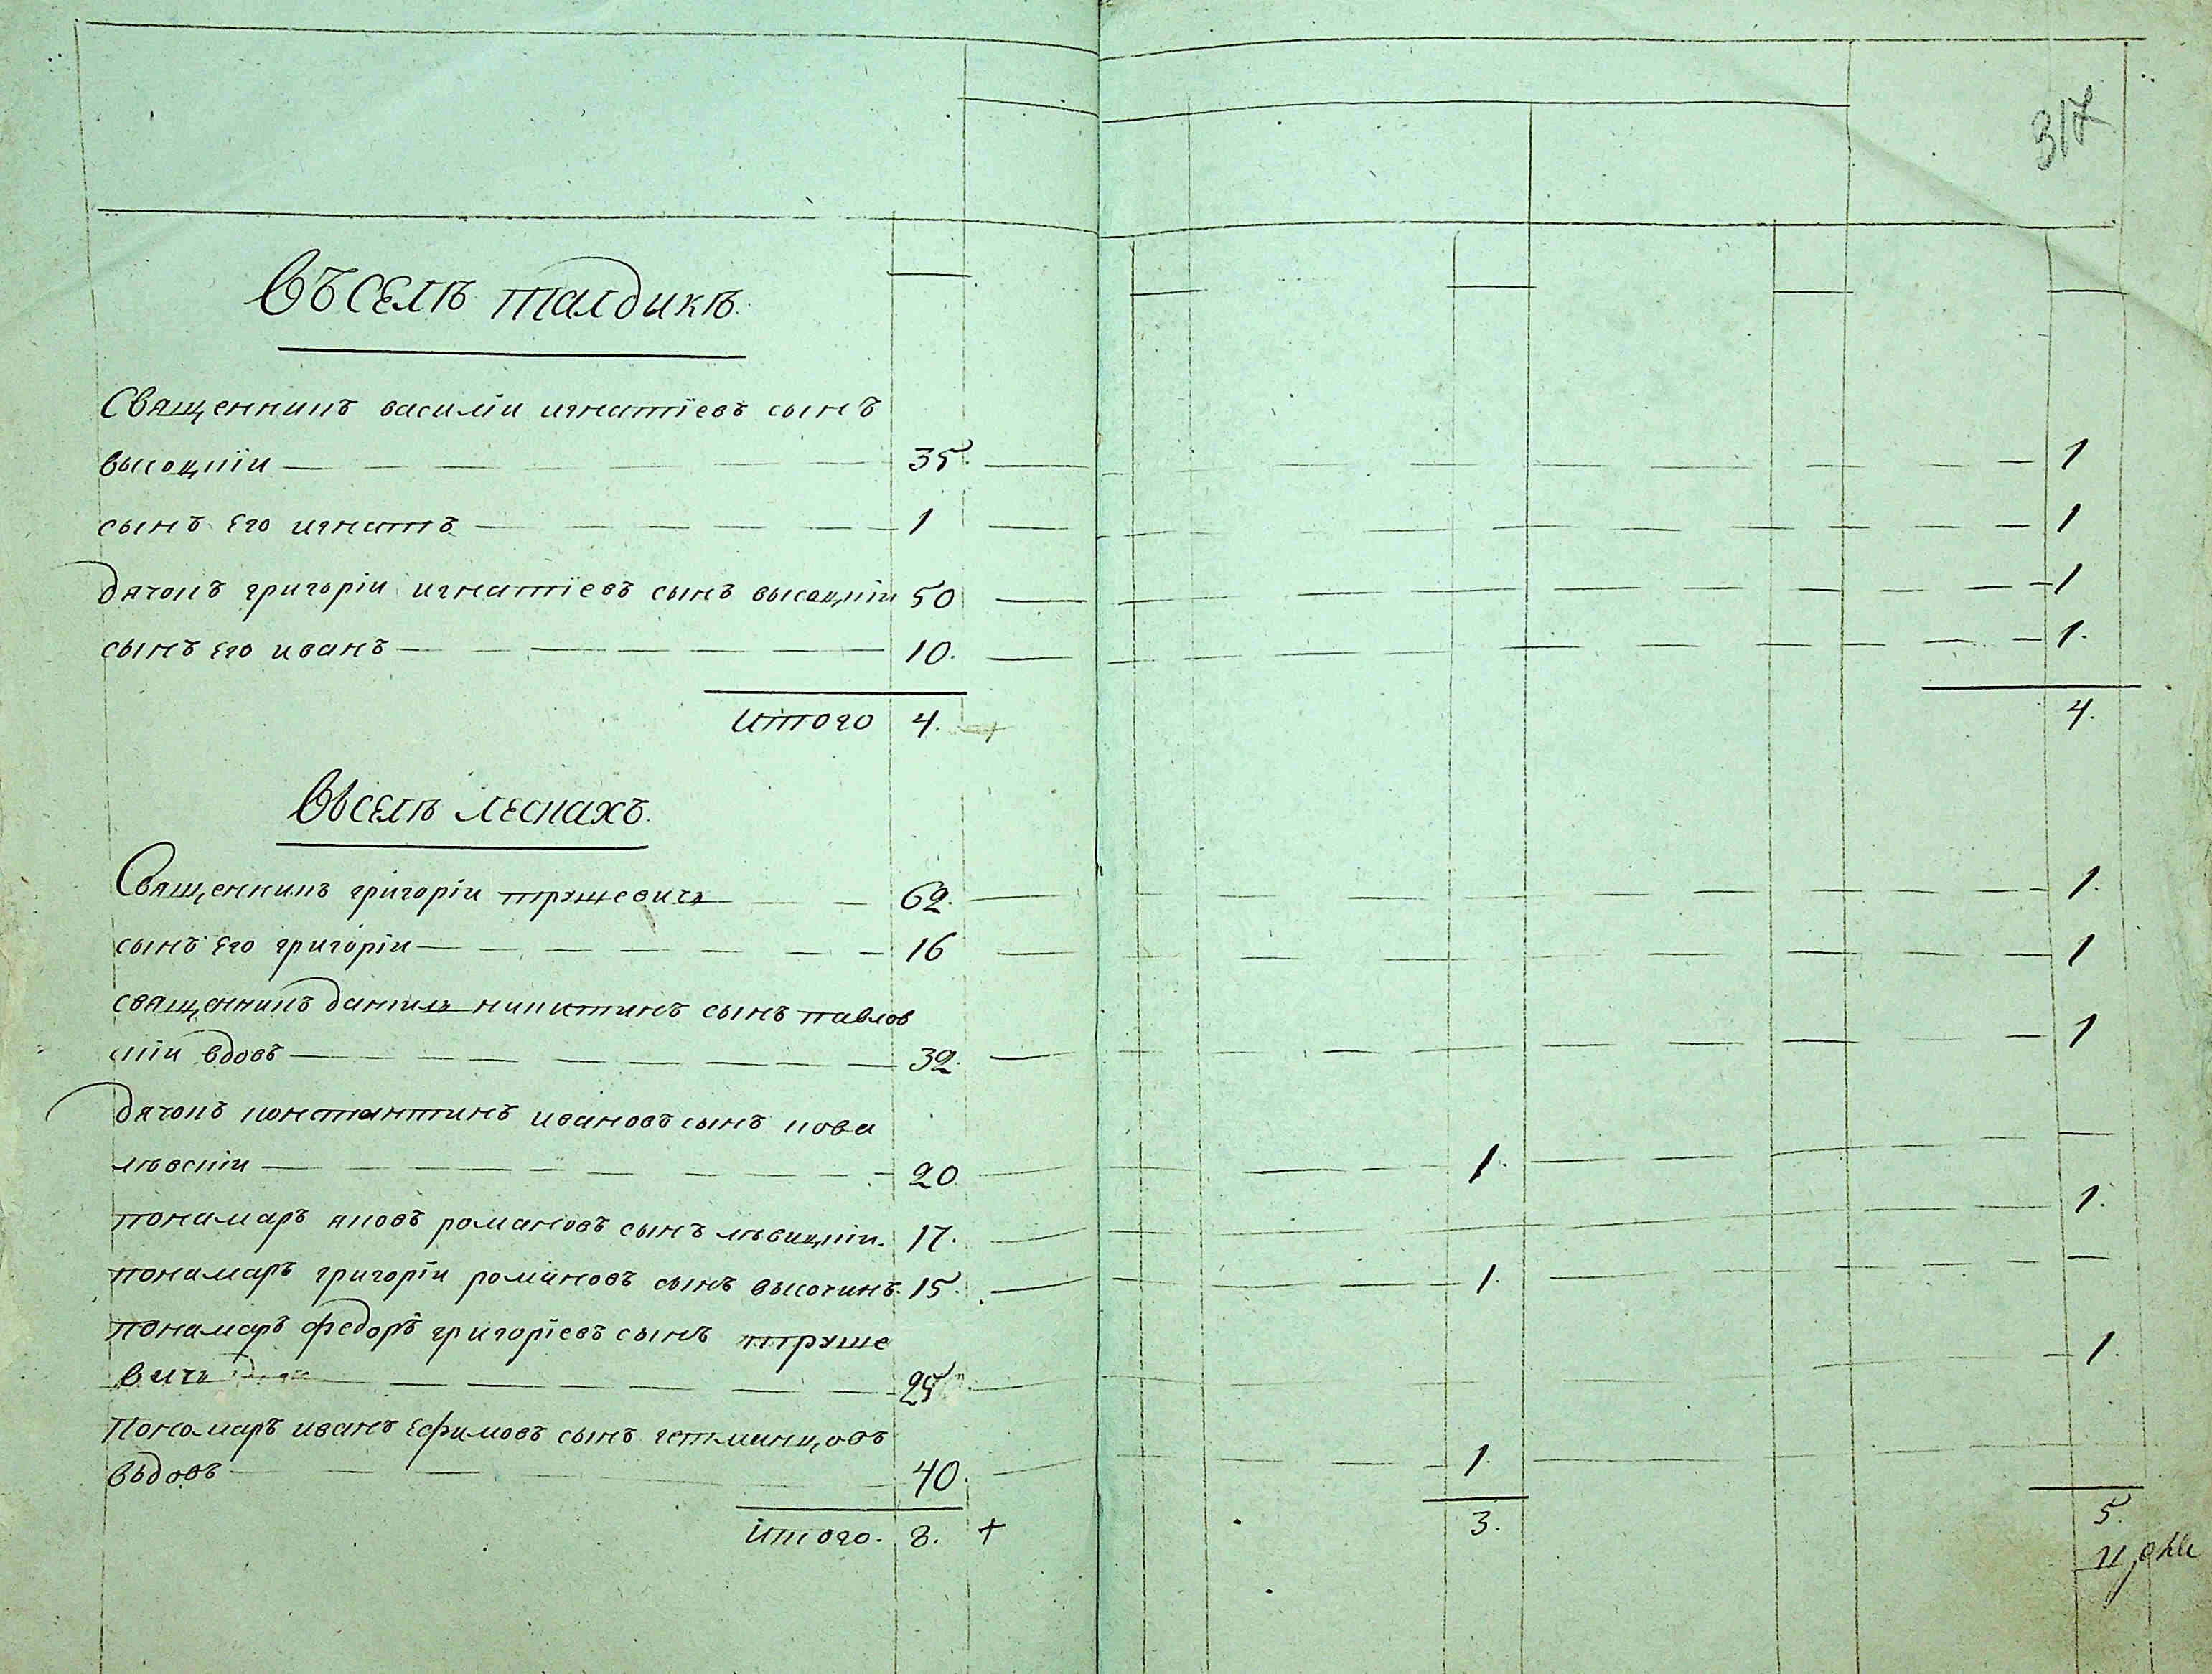 317
Въ селѣ талдикѣ
Священникъ василіи игнатіевъ сынъ
высоцкіи 35. 1
сынъ его игнатъ 1 1
дячокъ григоріи игнатіевъ сынъ высоцкіи 50 1
сынъ его иванъ 10. 1.
Итого 4. 4.
Вь селѣ лескахъ.
Священникъ григоріи трушевичь 62. 1.
сынъ его григоріи 16 1
священникъ данилъ никитинъ сынъ павлов
скіи вдовъ 32. 1
дячокъ константинъ ивановъ сынъ кова
лѣвскіи 20 1.
понамаръ яковъ романовъ сынъ лѣвицкіи. 17. 1.
понамаръ григоріи романовъ сынъ высочинъ. 15. 1.
понамаръ федоръ григоріевъ сынъ труше
вичь 25 1.
Пономаръ иванъ ефимовъ сынъ гетманцовъ
вьдовъ 40. 1.
Итого. 8. + 3. 5.